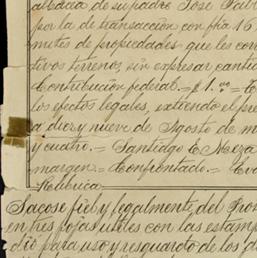 albacea de su padre José
por la de transacción con fha 16
mites de propiedades que les corr
tivos terrenos, sin expresar canti
Contribución federal.= $1.oo =
los efectos legales, extiendo el pres
a diez y nueve de Agosto de m
y cuatro.= Santiago C. Meza
margen.= Confrontado.=
Rúbrica
Sacose fiel y legalmente del Pro
en tres fojas utiles con las estamp
dio para uso y resguardo de los